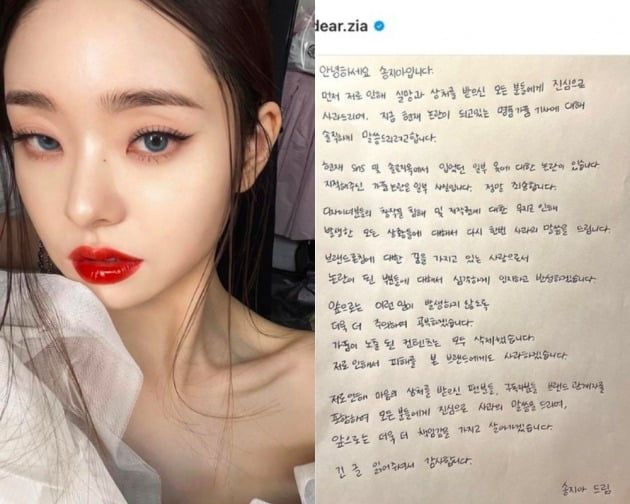 dear.zia
안녕하세요 송지아입니다.
먼저 저로 인해 실망과 상처를 받으신 모든 분들에게 진심으로
사과드리며, 지금 현재 논란이 되고있는 명품가품 기사에 대해
솔직하게 말씀드리려고합니다.
현재 SNS 및 솔로지옥에서 입었던 일부 옷에 대한 논란이 있습니다.
지적해주신 가품 논란은 일부 사실입니다. 정말 죄송합니다.
디자이너분들의 창작물 침해 및 저작권에 대한 무지로 인해
발생한 모든 상황들에 대해서 다시 한번 사과의 말씀을 드립니다.
브랜드론칭에 대한 꿈을 가지고 있는 사람으로서
논란이 된 부분들에 대해서 심각하게 인지하고 반성하겠습니다.
앞으로는 이런 일이 발생하지 않도록
더욱 더 주의하며 공부하겠습니다.
가품이 노출 된 컨텐츠는 모두 삭제했습니다.
저로 인해서 피해를 본 브랜드에게도 사과하겠습니다.
저로인해 마음의 상처를 받으신 팬분들, 구독자분들, 브랜드 관계자를
포함하여 모든 분들에게 진심으로 사과의 말씀을 드리며,
앞으로는 더욱 더 책임감을 가지고 살아가겠습니다.
긴 글 읽어주셔서 감사합니다.
송지아 드림